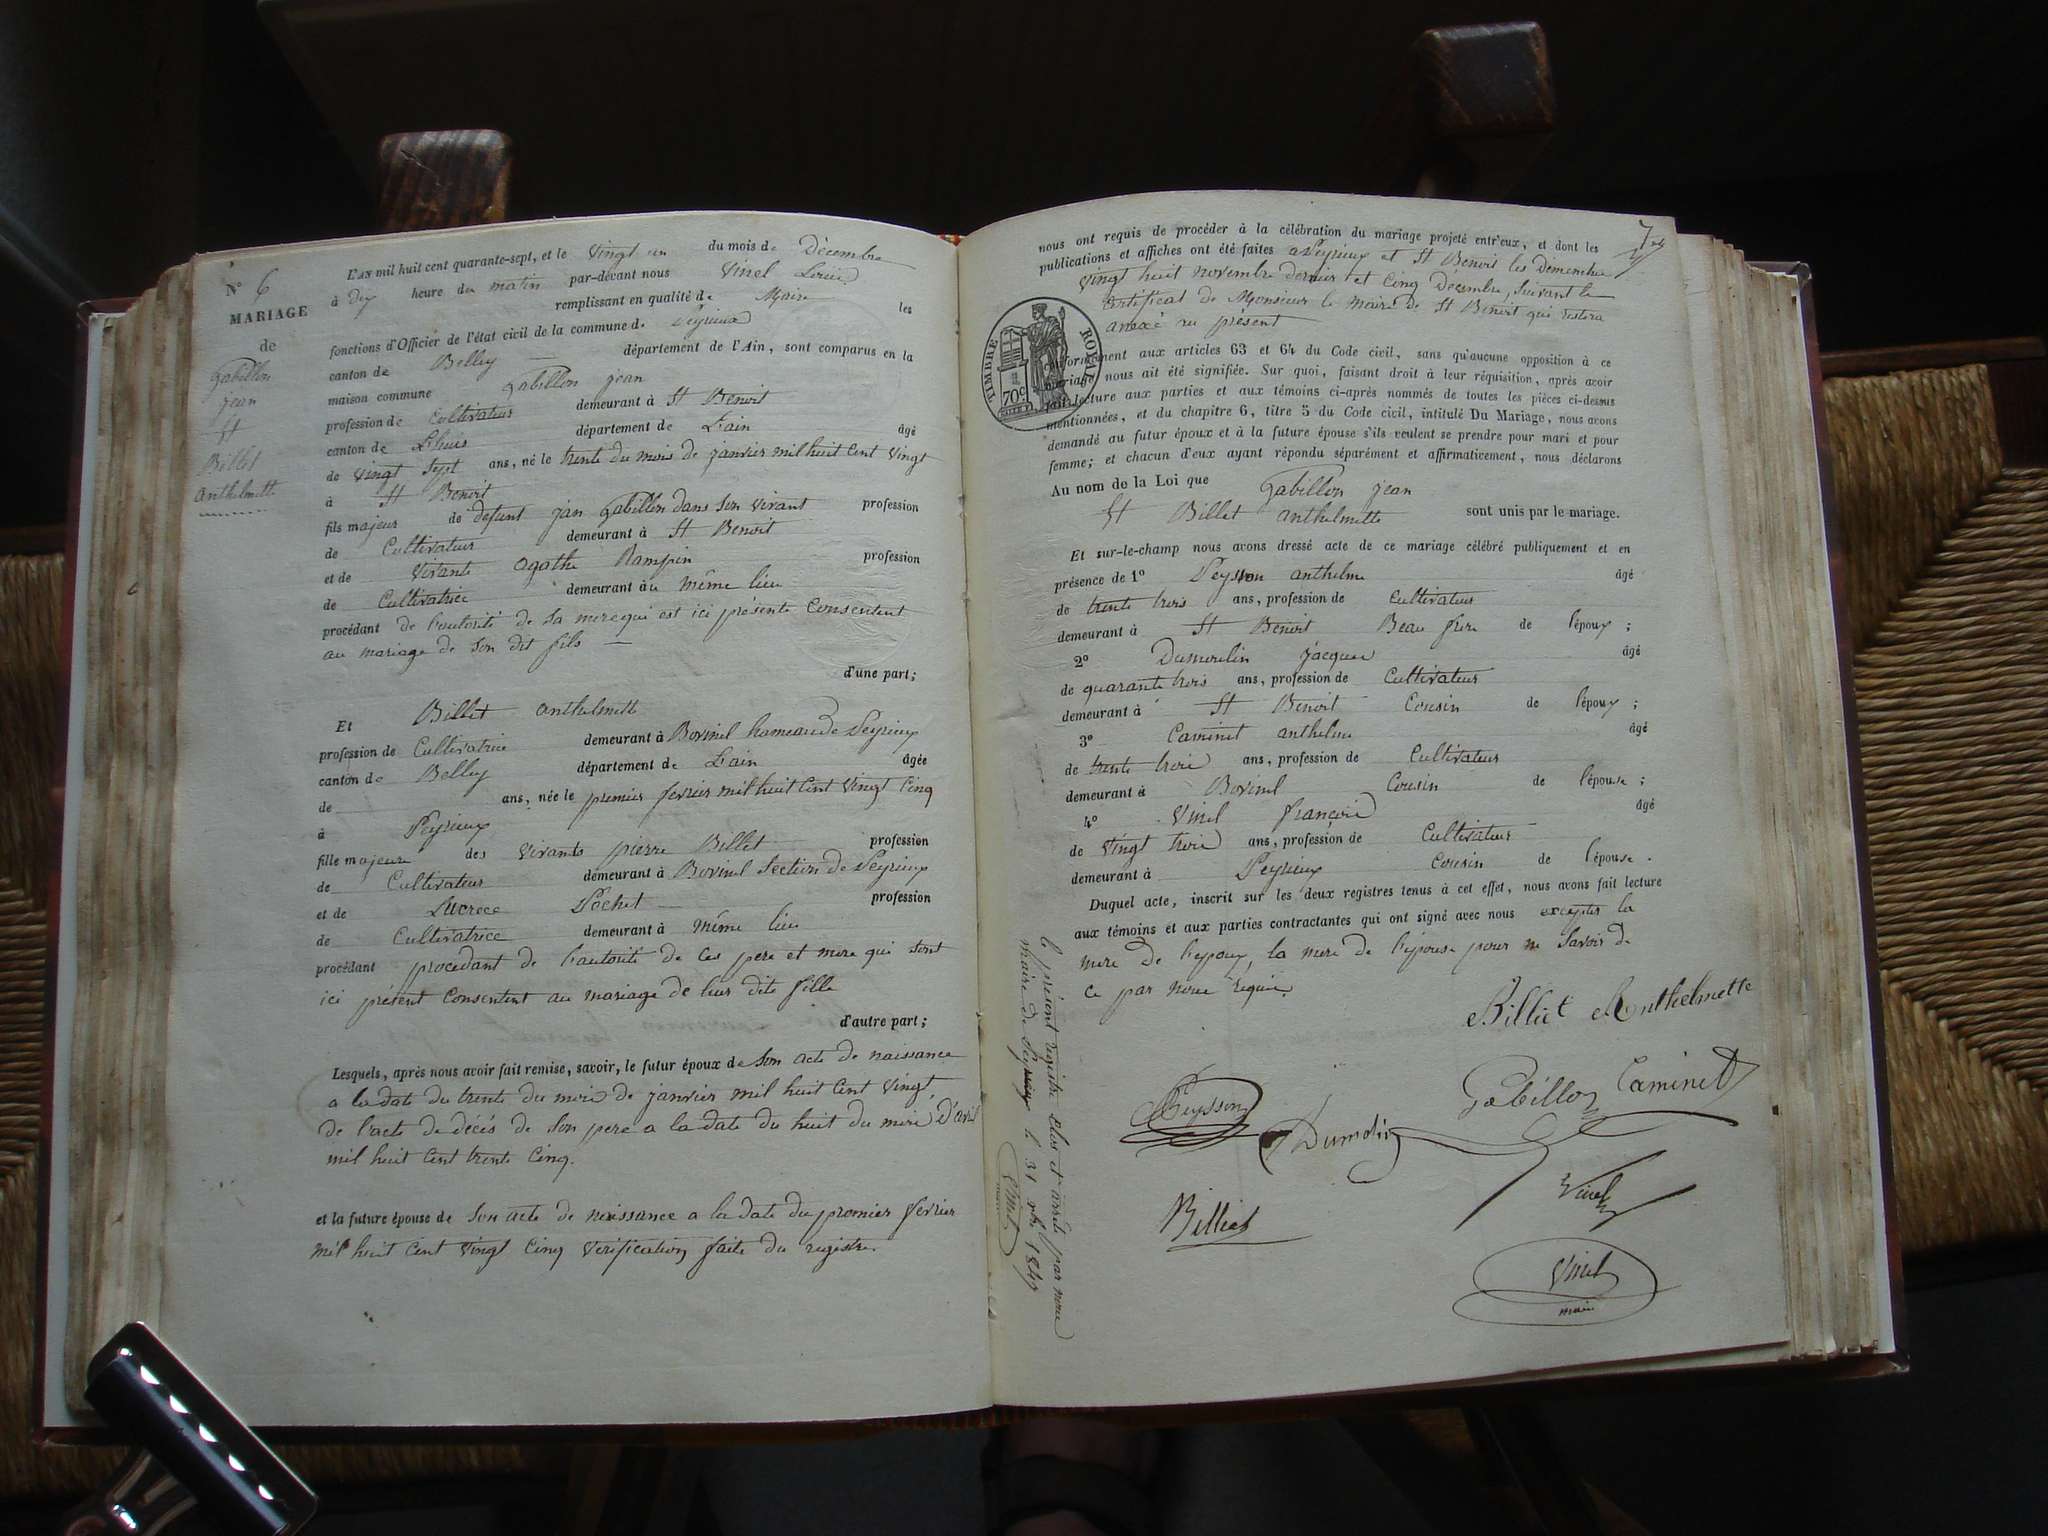 N° 6
MARIAGE
de
Gabillon
jean
Et
Billet
anthelmette
L'AN mil huit cent quarante-sept, et le vingt un du mois de Décembre
à dix heure du matin par-devant nous Vinel Louis
remplissant en qualité de Maire les
fonctions d'Officier de l'état civil de la commune de Peyrieux
canton de Belley département de l'Ain, sont comparus en la
maison commune Gabillon jean
profession de Cultivateur demeurant à St Benoit
canton de Lhuis département de L'ain âgé
de vingt sept ans, né le trente du mois de janvier mil huit Cent vingt
à St Benoit
fils majeur de defunt jan Gabillon dans son vivant profession
de Cultivateur demeurant à St Benoit
et de vivante agathe Rampin profession
de Cultivatrice demeurant au même lieu
procédant de l'autorité de sa mere qui est ici présente Consentent
au mariage de son dit fils
d'une part;
Et Billet anthelmette
profession de Cultivatrice demeurant à Bovinel hameau de Peyrieux
canton de Belley département de L'ain âgée
de ans, née le premier fevrier mil huit Cent vingt Cinq
à Peyrieux
fille majeure des vivants pierre Billet profession
de Cultivateur demeurant à Bovinel Section de Peyrieux
et de Lucrece Pochet profession
de Cultivatrice demeurant à même lieu
procédant procedant de l'autorité de ces pere et mere qui sont
ici présent Consentent au mariage de leur dite fille
d'autre part;
Lesquels, après nous avoir fait remise, savoir, le futur époux de son acte de naissance
a la date du trente du mois de janvier mil huit Cent vingt
de l'acte de décés de son pere a la date du huit du mois D'avril
mil huit Cent trente Cinq.
et la future épouse de son acte de naissance a la date du premier fevrier
mil huit Cent vingt Cinq verification faite du registre.
7
nous ont requis de procéder à la célébration du mariage projeté entr'eux, et dont les
publications et affiches ont été faites a Peyrieux et St Benoit les Dimanches
vingt huit novembre dernier et Cinq Décembre, suivant le
Certificat de Monsieur le maire de St Benoit qui restera
annexé au présent
TIMBRE ROYAL
70c
Conformément aux articles 63 et 64 du Code civil, sans qu'aucune opposition à ce
mariage nous ait été signifiée. Sur quoi, faisant droit à leur réquisition, après avoir
fait lecture aux parties et aux témoins ci-après nommés de toutes les pièces ci-dessus
mentionnées, et du chapitre 6, titre 5 du Code civil, intitulé Du Mariage, nous avons
demandé au futur époux et à la future épouse s'ils veulent se prendre pour mari et pour
femme; et chacun d'eux ayant répondu séparément et affirmativement, nous déclarons
Au nom de la Loi que Gabillon jean
Et Billet anthelmette sont unis par le mariage.
Et sur-le-champ nous avons dressé acte de ce mariage célébré publiquement et en
présence de 1° Peysson anthelme âgé
de trente trois ans, profession de Cultivateur
demeurant à St Benoit Beau frere de l'époux;
2° Dumoulin jacques âgé
de quarante trois ans, profession de Cultivateur
demeurant à St Benoit Cousin de l'époux;
3° Caminet anthelme âgé
de trente trois ans, profession de Cultivateur
demeurant à Bovinel Cousin de l'épouse;
4° Vinel françois âgé
de vingt trois ans, profession de Cultivateur
demeurant à Peyrieux Cousin de l'épouse.
Duquel acte, inscrit sur les deux registres tenus à cet effet, nous avons fait lecture
aux témoins et aux parties contractantes qui ont signé avec nous exceptés la
mere de l'epoux, la mere de l'épouse pour ne Savoir de
Ce par nous requis.
Billiet Anthelmette
Peysson
Dumolin
Gabillon
Caminet
Billiet
Vinel
Vinel
maire
le présent registre Clos et arrêté par nous
maire de Peyrieux le 31 xbre 1847
Vinel
maire